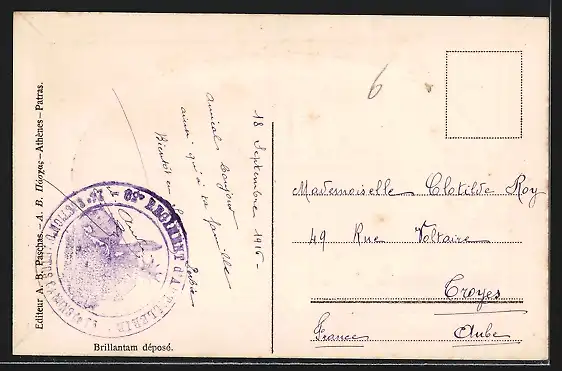 Editeur A. B. Paschas. – A. B. Πάσχας – Athènes – Patras.
18 Septembre 1916 –
Amical bonjour
ainsi qu'à sa famille
Bientôt
Mademoiselle Clotilde Roy
49 Rue Voltaire
Troyes
France Aube
6
REGIMENT d'ARTILLERIE
Brillantam déposé.